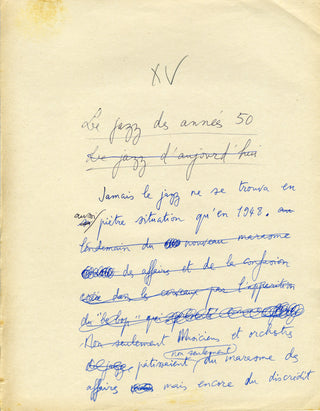 XV
Le jazz des années 50
Le jazz d'aujourd'hui
Jamais le jazz ne se trouva en
aussi piètre situation qu'en 1948. au
lendemain du nouveau marasme
des affaires et de la confusion
créée dans les cerveaux par l'apparition
du "be bop" qui
Non seulement Musiciens et orchestres
de jazz pâtissaient non seulement du marasme des
affaires mais encore du discrédit